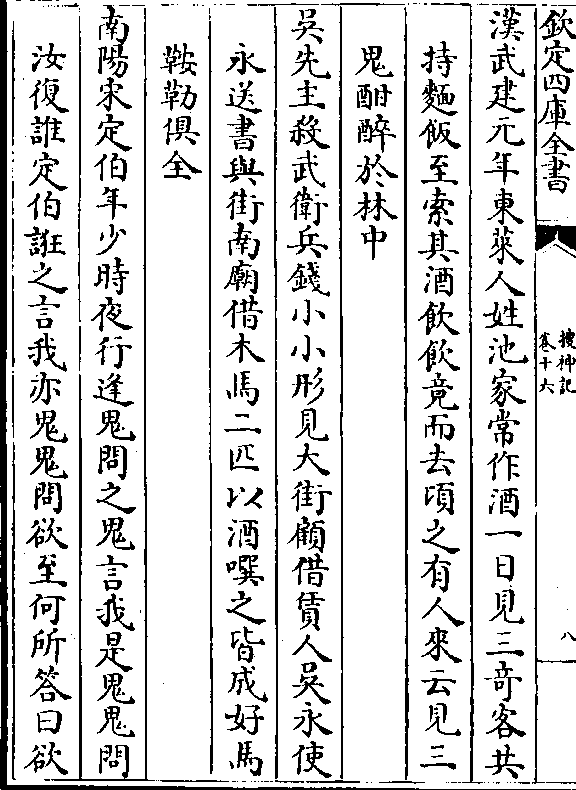 欽定四庫全書
搜神記
卷十六
八
漢武建元年東萊人姓池家常作酒一日見三奇客共
持麵飯至索其酒飲飲竟而去頃之有人來云見三
鬼酣醉於林中
吳先主殺武衛兵錢小小形見大街顧借賃人吳永使
永送書與街南廟借木馬二匹以酒噀之皆成好馬
鞍勒俱全
南陽宋定伯年少時夜行逢鬼問之鬼言我是鬼鬼問
汝復誰定伯誑之言我亦鬼鬼問欲至何所答曰欲